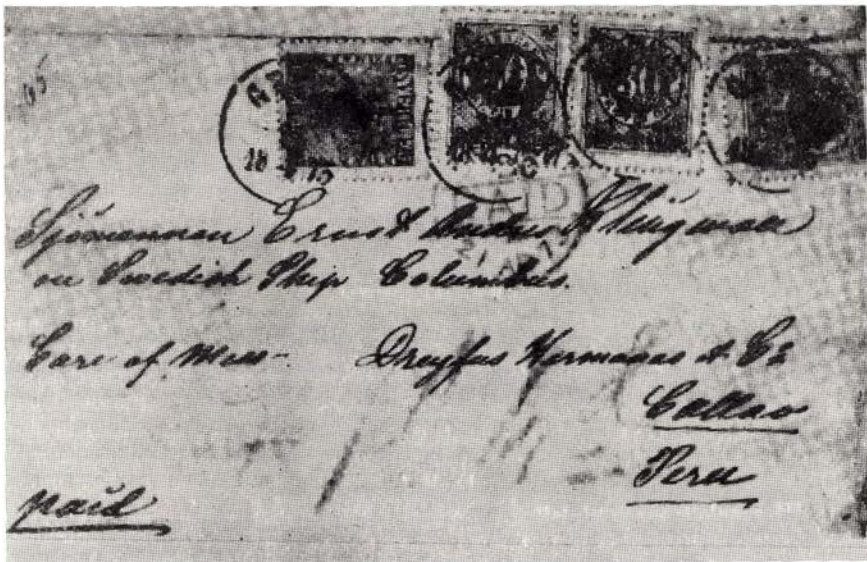 Sjömannen Ernst Andres
on Swedish Ship Columbus.
Care of Mess- Dreyfus Hermanas & Co
Callao
Peru
paid
PAID